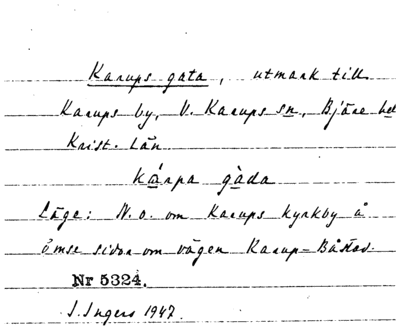 Karups gata, utmark till
Karups by, V. Karups sn, Bjäre hd
Krist. Län
kárpa gàda
Läge: N.o. om Karups kyrkby å
ömse sidor om vägen Karup-Båstad.
Nr 5324.
I. Ingers 1947.